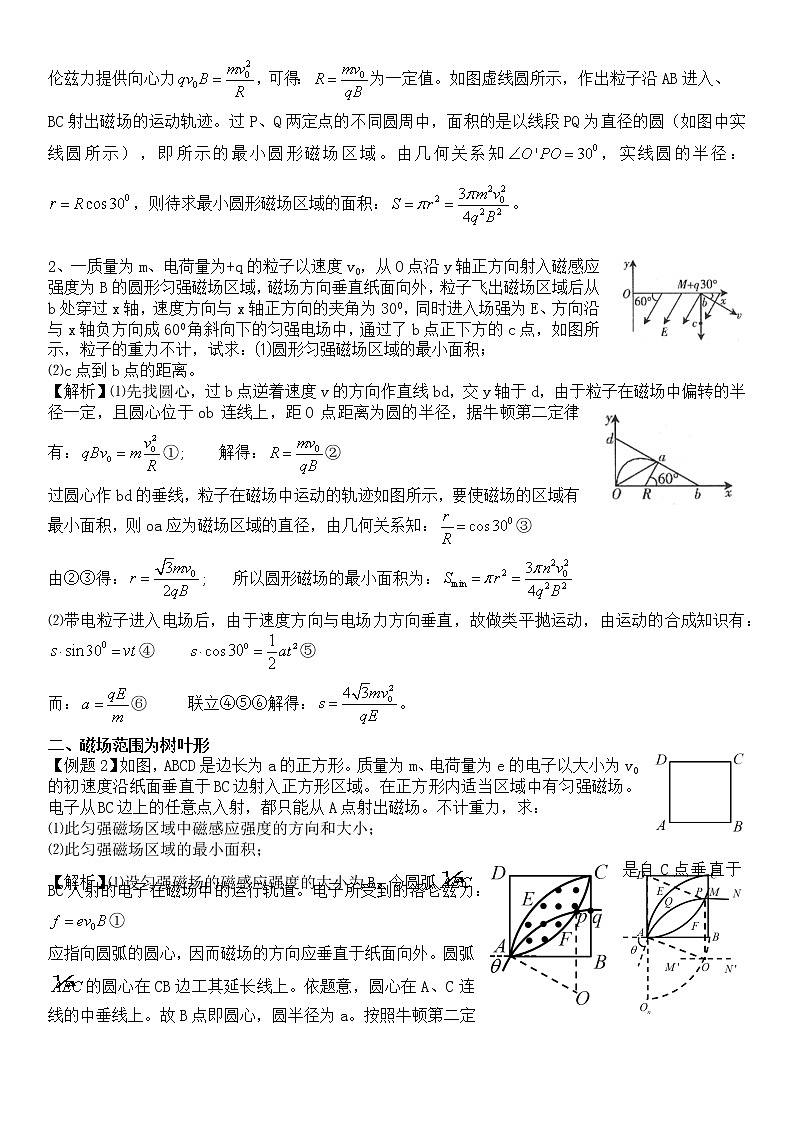 伦兹力提供向心力 qv₀B = mv₀²/R，可得：R = mv₀/qB 为一定值。如图虚线圆所示，作出粒子沿AB进入、
BC射出磁场的运动轨迹。过P、Q两定点的不同圆周中，面积的是以线段PQ为直径的圆（如图中实
线圆所示），即所示的最小圆形磁场区域。由几何关系知∠O'PO=30⁰，实线圆的半径：
r = Rcos30⁰，则待求最小圆形磁场区域的面积：S = πr² = 3πm²v₀²/4q²B²。
2、一质量为m、电荷量为+q的粒子以速度v₀，从O点沿y轴正方向射入磁感应
强度为B的圆形匀强磁场区域，磁场方向垂直纸面向外，粒子飞出磁场区域后从
b处穿过x轴，速度方向与x轴正方向的夹角为30⁰，同时进入场强为E、方向沿
与x轴负方向成60⁰角斜向下的匀强电场中，通过了b点正下方的c点，如图所
示，粒子的重力不计，试求：⑴圆形匀强磁场区域的最小面积；
⑵c点到b点的距离。
y
O
M+q30°
60°
b
x
v
E
c
【解析】⑴先找圆心，过b点逆着速度v的方向作直线bd，交y轴于d，由于粒子在磁场中偏转的半
径一定，且圆心位于ob连线上，距O点距离为圆的半径，据牛顿第二定律
有：qBv₀ = m v₀²/R ①； 解得：R = mv₀/qB ②
过圆心作bd的垂线，粒子在磁场中运动的轨迹如图所示，要使磁场的区域有
最小面积，则oa应为磁场区域的直径，由几何关系知：r/R = cos30⁰ ③
y
d
a
60°
O
R
b
x
由②③得：r = √3mv₀/2qB； 所以圆形磁场的最小面积为：Smin = πr² = 3πn²v₀²/4q²B²
⑵带电粒子进入电场后，由于速度方向与电场力方向垂直，故做类平抛运动，由运动的合成知识有：
s·sin30⁰ = vt ④ s·cos30⁰ = 1/2 at² ⑤
而：a = qE/m ⑥ 联立④⑤⑥解得：s = 4√3mv₀²/qE。
二、磁场范围为树叶形
【例题2】如图，ABCD是边长为a的正方形。质量为m、电荷量为e的电子以大小为v₀
的初速度沿纸面垂直于BC边射入正方形区域。在正方形内适当区域中有匀强磁场。
电子从BC边上的任意点入射，都只能从A点射出磁场。不计重力，求：
⑴此匀强磁场区域中磁感应强度的方向和大小；
⑵此匀强磁场区域的最小面积；
D
C
A
B
【解析】⑴设匀强磁场的磁感应强度的大小为B。令圆弧
是自C点垂直于
BC入射的电子在磁场中的运行轨道。电子所受到的洛仑兹力：
f = ev₀B ①
应指向圆弧的圆心，因而磁场的方向应垂直于纸面向外。圆弧
的圆心在CB边工其延长线上。依题意，圆心在A、C连
线的中垂线上。故B点即圆心，圆半径为a。按照牛顿第二定
D
C
E
p
q
F
A
θ
B
O
E
P
M
N
Q
F
A
B
θ
M'
O
N'
Oₙ